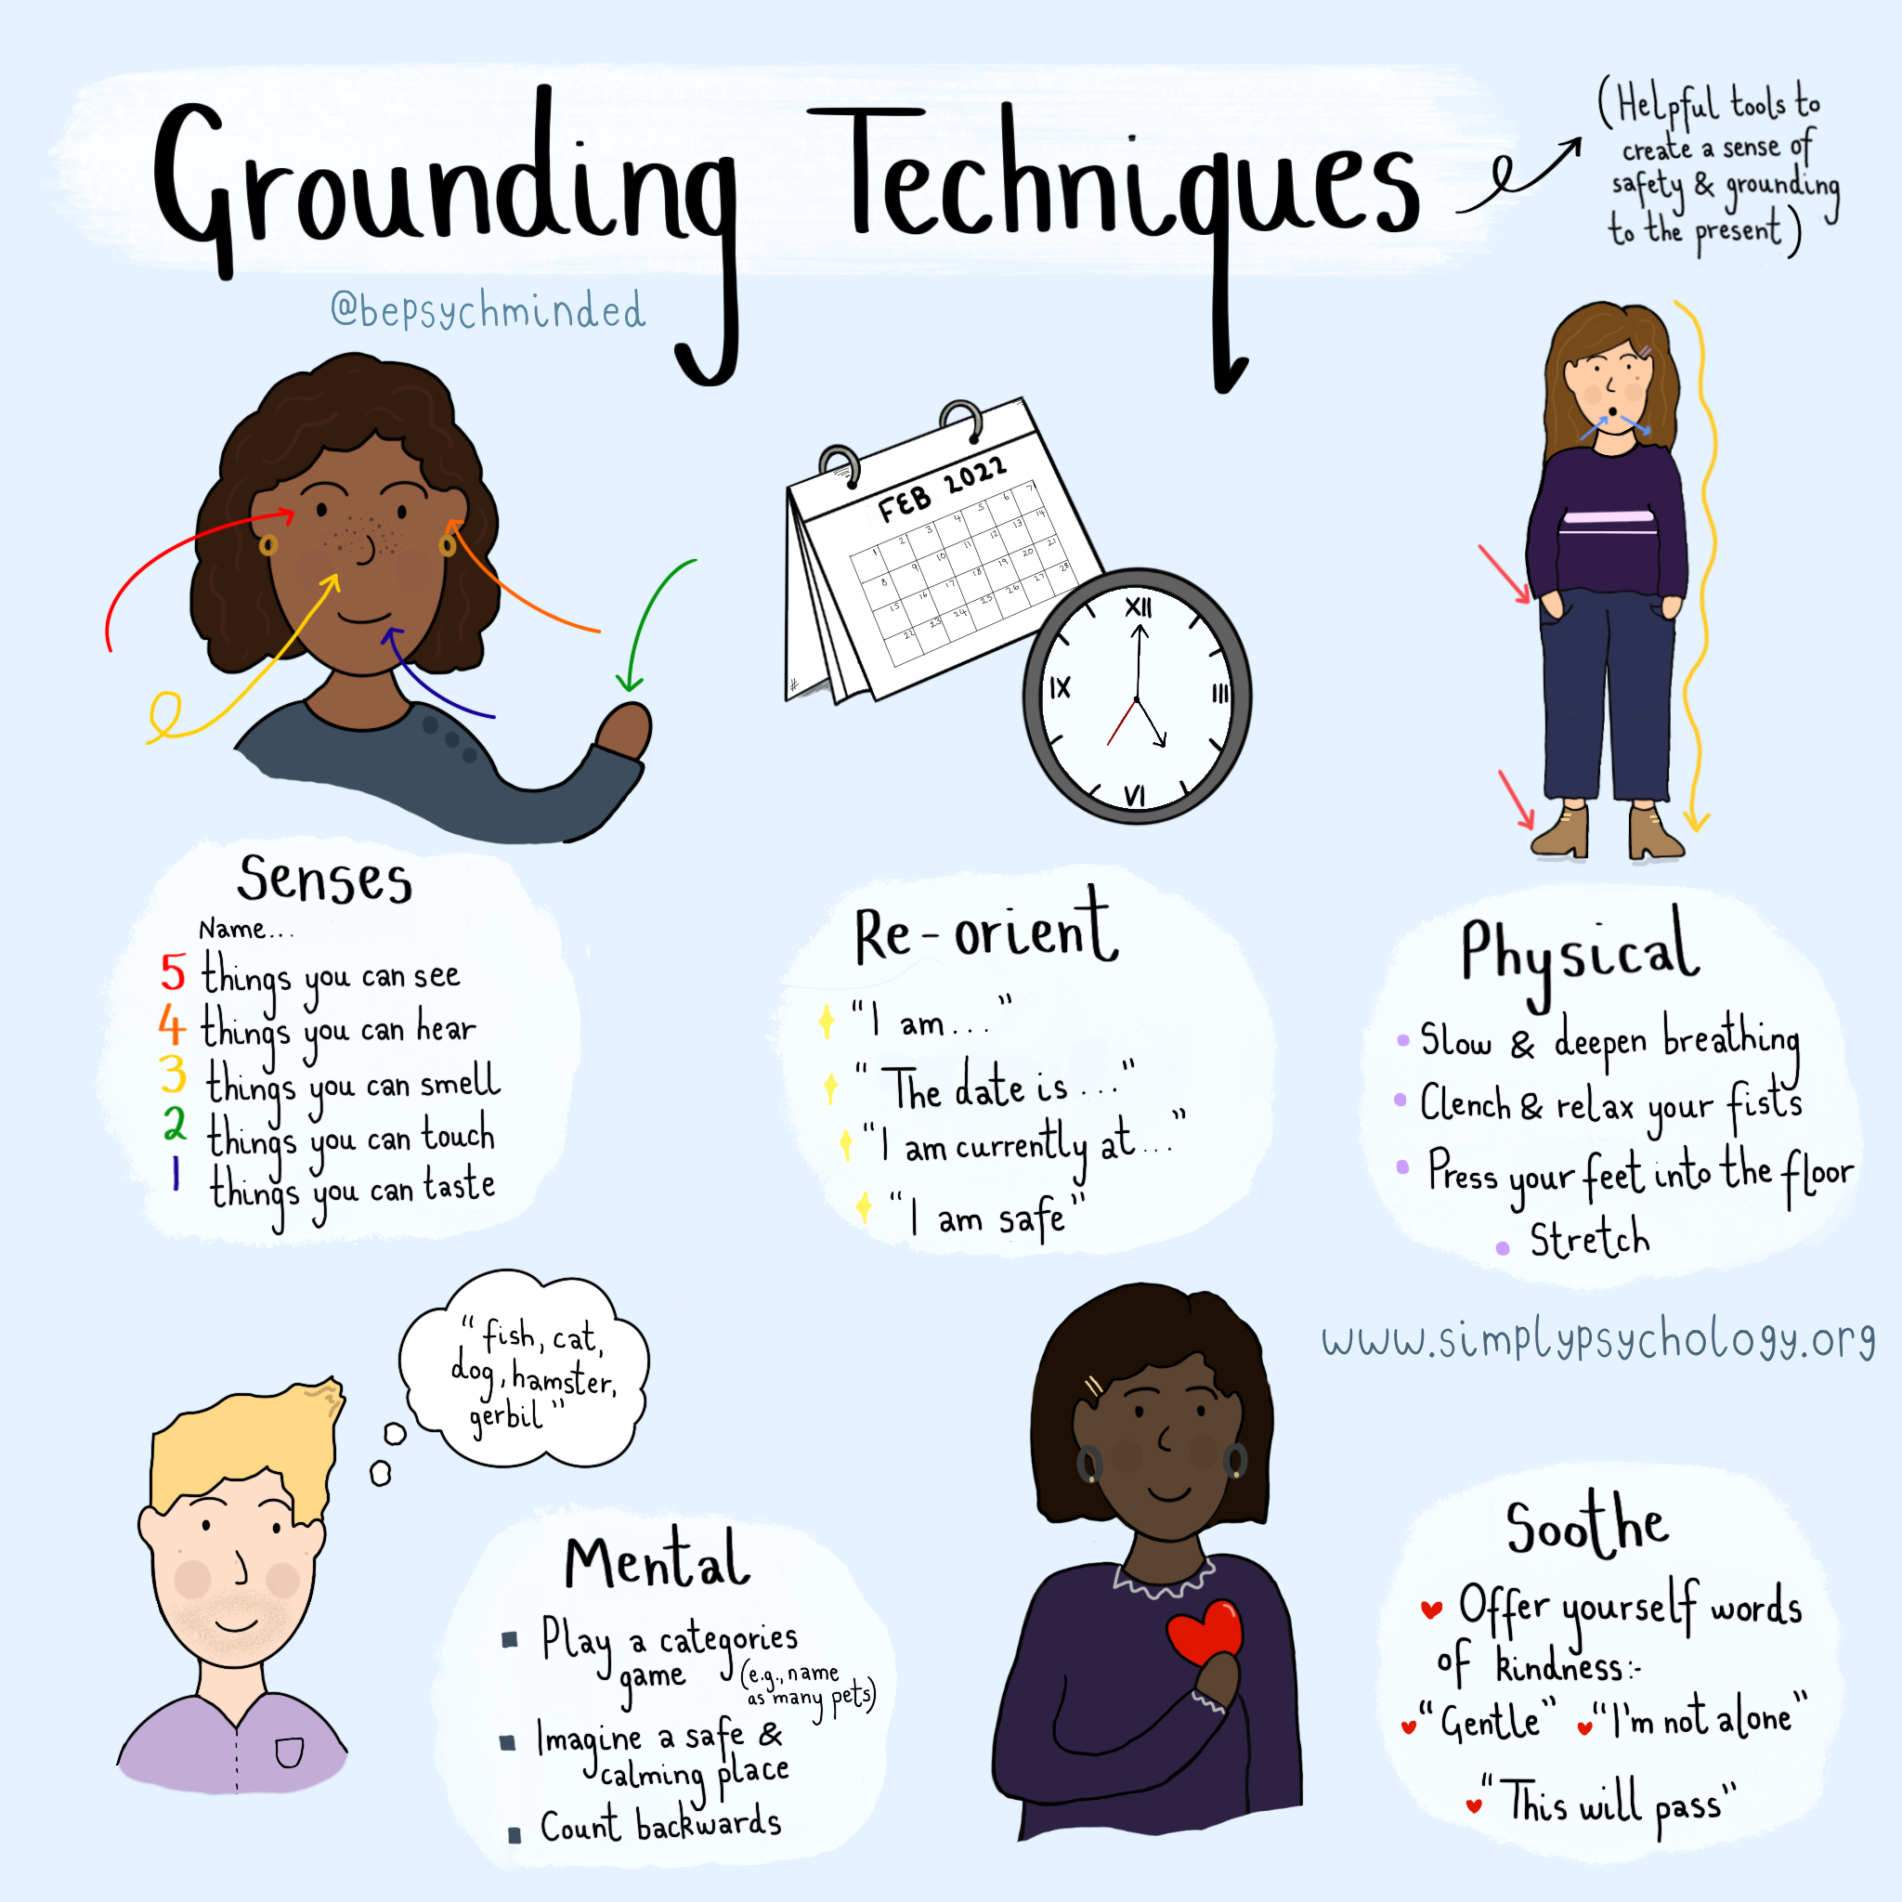 Grounding Techniques
(Helpful tools to
create a sense of
safety & grounding
to the present)
@bepsychminded
FEB 2022
1 2 3 4 5 6 7
8 9 10 11 12 13 14
15 16 17 18 19 20 21
22 23 24 25 26 27 28
XII
III
VI
IX
Senses
Name...
5 things you can see
4 things you can hear
3 things you can smell
2 things you can touch
1 things you can taste
Re-orient
"I am..."
"The date is..."
"I am currently at..."
"I am safe"
Physical
Slow & deepen breathing
Clench & relax your fists
Press your feet into the floor
Stretch
www.simplypsychology.org
"fish, cat,
dog, hamster,
gerbil"
Mental
Play a categories
game (e.g., name
as many pets)
Imagine a safe &
calming place
Count backwards
Soothe
Offer yourself words
of kindness:-
"Gentle" "I'm not alone"
"This will pass"